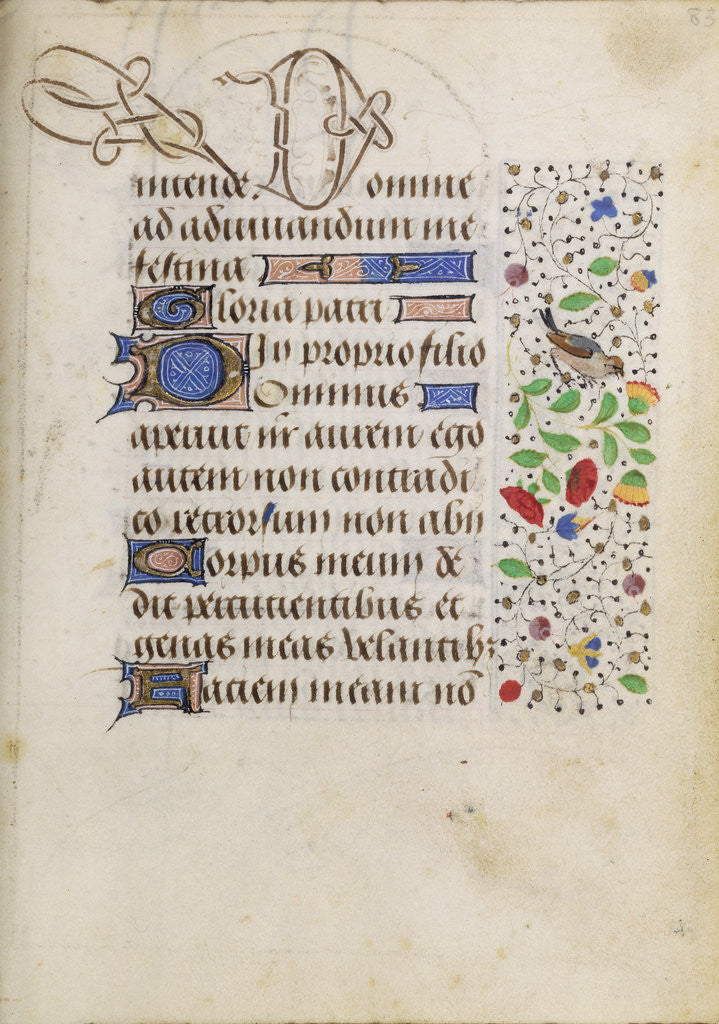 63
intende. Domine
ad adiuuandum me
festina
Gloria patri
In proprio filio
Dominus
aperuit m̄ aurem ego
autem non contradi
co retrorsum non abij
Corpus meum de
di percucientibus et
genas meas velantibꝫ
Faciem meam nō